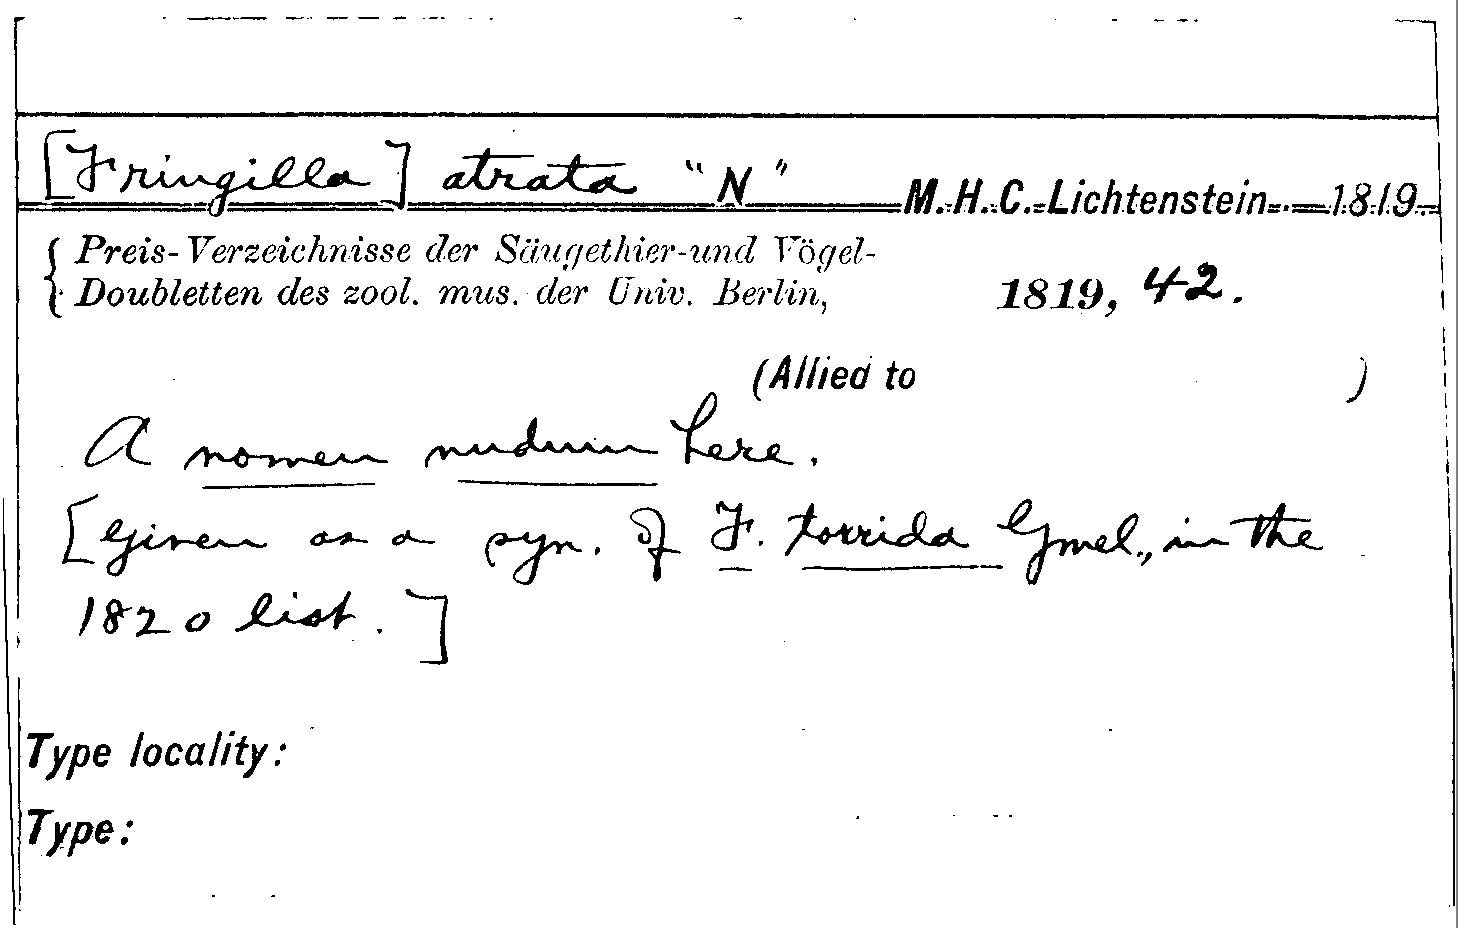 [Fringilla] atrata "N" M.H.C. Lichtenstein 1819
Preis-Verzeichnisse der Säugethier-und Vögel-
Doubletten des zool. mus. der Univ. Berlin, 1819, 42.
(Allied to )
A nomen nudum here.
[Given as a syn. of F. torrida Gmel., in the
1820 list.]
Type locality:
Type: